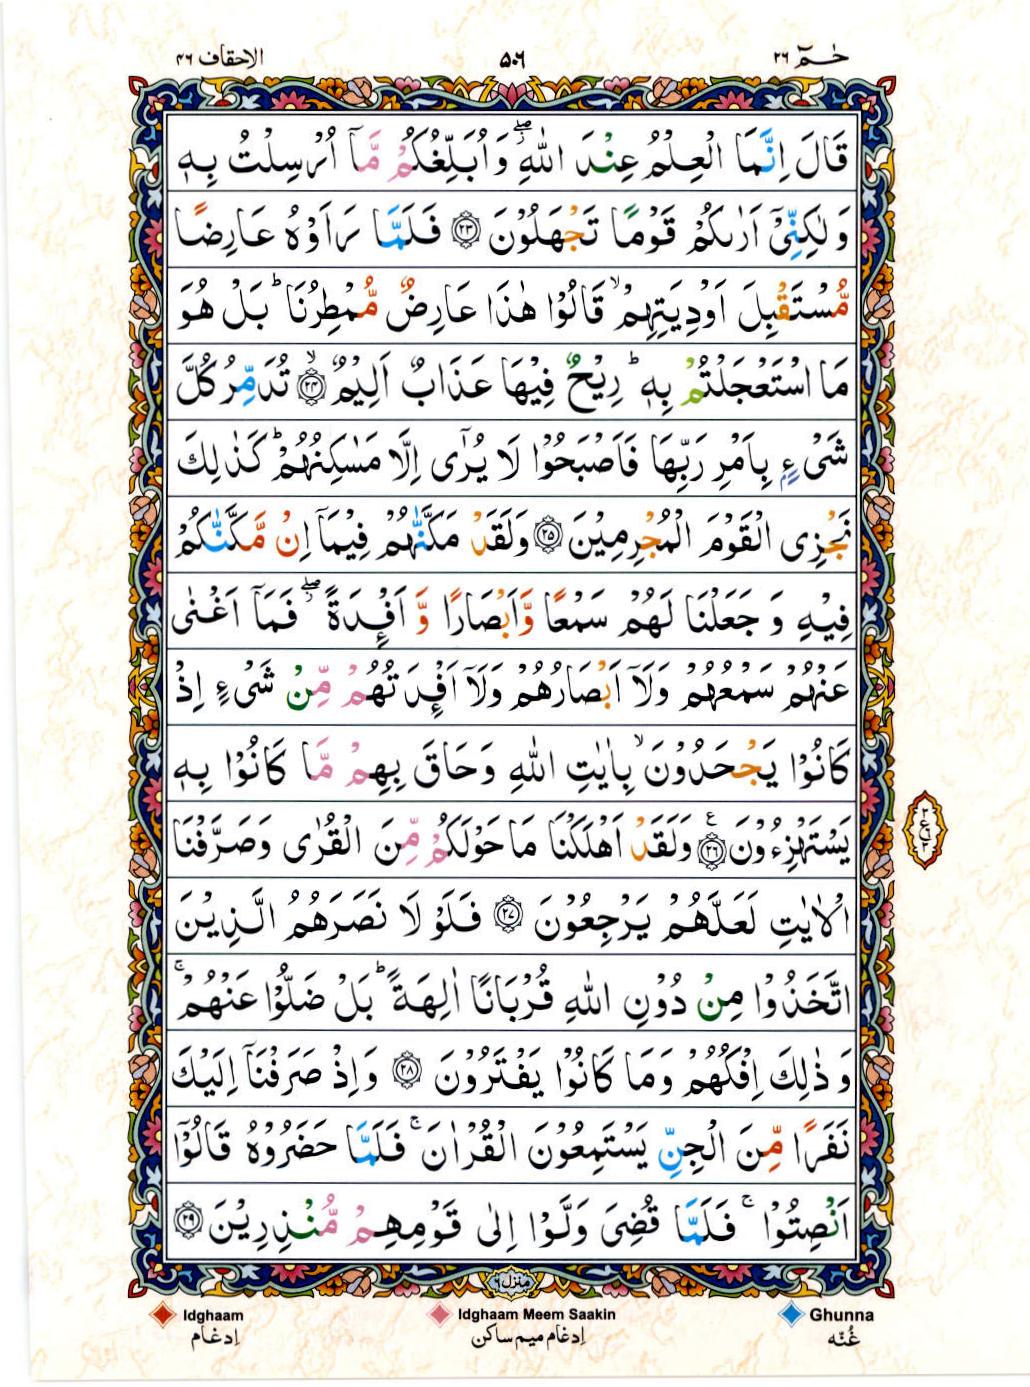 الاحقاف ٤٦
٥٠٦
حٰمٓ ٢٦
قَالَ اِنَّمَا الْعِلْمُ عِنْدَ اللّٰهِ ۖ وَاُبَلِّغُكُمْ مَّاۤ اُرْسِلْتُ بِهٖ
وَلٰكِنِّیْۤ اَرٰىكُمْ قَوْمًا تَجْهَلُوْنَ ﴿۲۳﴾ فَلَمَّا رَاَوْهُ عَارِضًا
مُّسْتَقْبِلَ اَوْدِیَتِهِمْ ۙ قَالُوْا هٰذَا عَارِضٌ مُّمْطِرُنَا ؕ بَلْ هُوَ
مَا اسْتَعْجَلْتُمْ بِهٖ ؕ رِیْحٌ فِیْهَا عَذَابٌ اَلِیْمٌ ۙ ﴿۲۴﴾ تُدَمِّرُ كُلَّ
شَیْءٍۭ بِاَمْرِ رَبِّهَا فَاَصْبَحُوْا لَا یُرٰۤی اِلَّا مَسٰكِنُهُمْ ؕ كَذٰلِكَ
نَجْزِی الْقَوْمَ الْمُجْرِمِیْنَ ﴿۲۵﴾ وَلَقَدْ مَكَّنّٰهُمْ فِیْمَاۤ اِنْ مَّكَّنّٰكُمْ
فِیْهِ وَ جَعَلْنَا لَهُمْ سَمْعًا وَّاَبْصَارًا وَّ اَفْـِٕدَةً ۖ فَمَاۤ اَغْنٰی
عَنْهُمْ سَمْعُهُمْ وَلَاۤ اَبْصَارُهُمْ وَلَاۤ اَفْـِٕدَتُهُمْ مِّنْ شَیْءٍ اِذْ
كَانُوْا یَجْحَدُوْنَ ۙ بِاٰیٰتِ اللّٰهِ وَحَاقَ بِهِمْ مَّا كَانُوْا بِهٖ
یَسْتَهْزِءُوْنَ ﴿۲۶﴾ ع وَلَقَدْ اَهْلَكْنَا مَا حَوْلَكُمْ مِّنَ الْقُرٰی وَصَرَّفْنَا
الْاٰیٰتِ لَعَلَّهُمْ یَرْجِعُوْنَ ﴿۲۷﴾ فَلَوْ لَا نَصَرَهُمُ الَّذِیْنَ
اتَّخَذُوْا مِنْ دُوْنِ اللّٰهِ قُرْبَانًا اٰلِهَةً ؕ بَلْ ضَلُّوْا عَنْهُمْ ۚ
وَ ذٰلِكَ اِفْكُهُمْ وَمَا كَانُوْا یَفْتَرُوْنَ ﴿۲۸﴾ وَاِذْ صَرَفْنَاۤ اِلَیْكَ
نَفَرًا مِّنَ الْجِنِّ یَسْتَمِعُوْنَ الْقُرْاٰنَ ۚ فَلَمَّا حَضَرُوْهُ قَالُوْۤا
اَنْصِتُوْا ۚ فَلَمَّا قُضِیَ وَلَّوْا اِلٰی قَوْمِهِمْ مُّنْذِرِیْنَ ﴿۲۹﴾
منزل ٦
Idghaam
اِدغام
Idghaam Meem Saakin
اِدغام میم ساکن
Ghunna
غُنّه